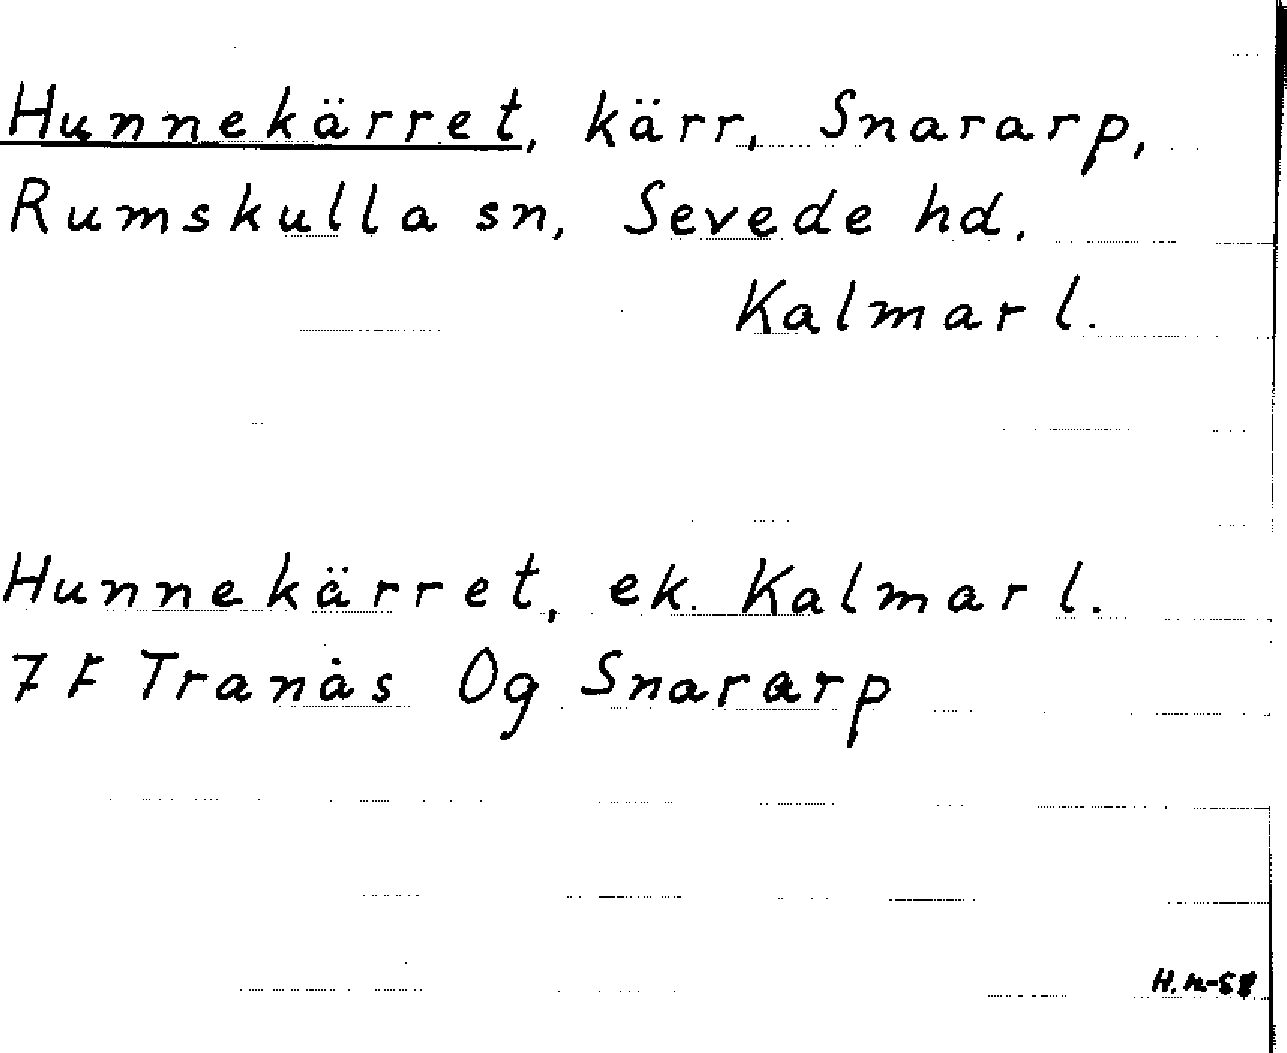 Hunnekärret, kärr, Snararp,
Rumskulla sn, Sevede hd.
Kalmar l.
Hunnekärret, ek. Kalmar l.
7 F Tranås Og Snararp